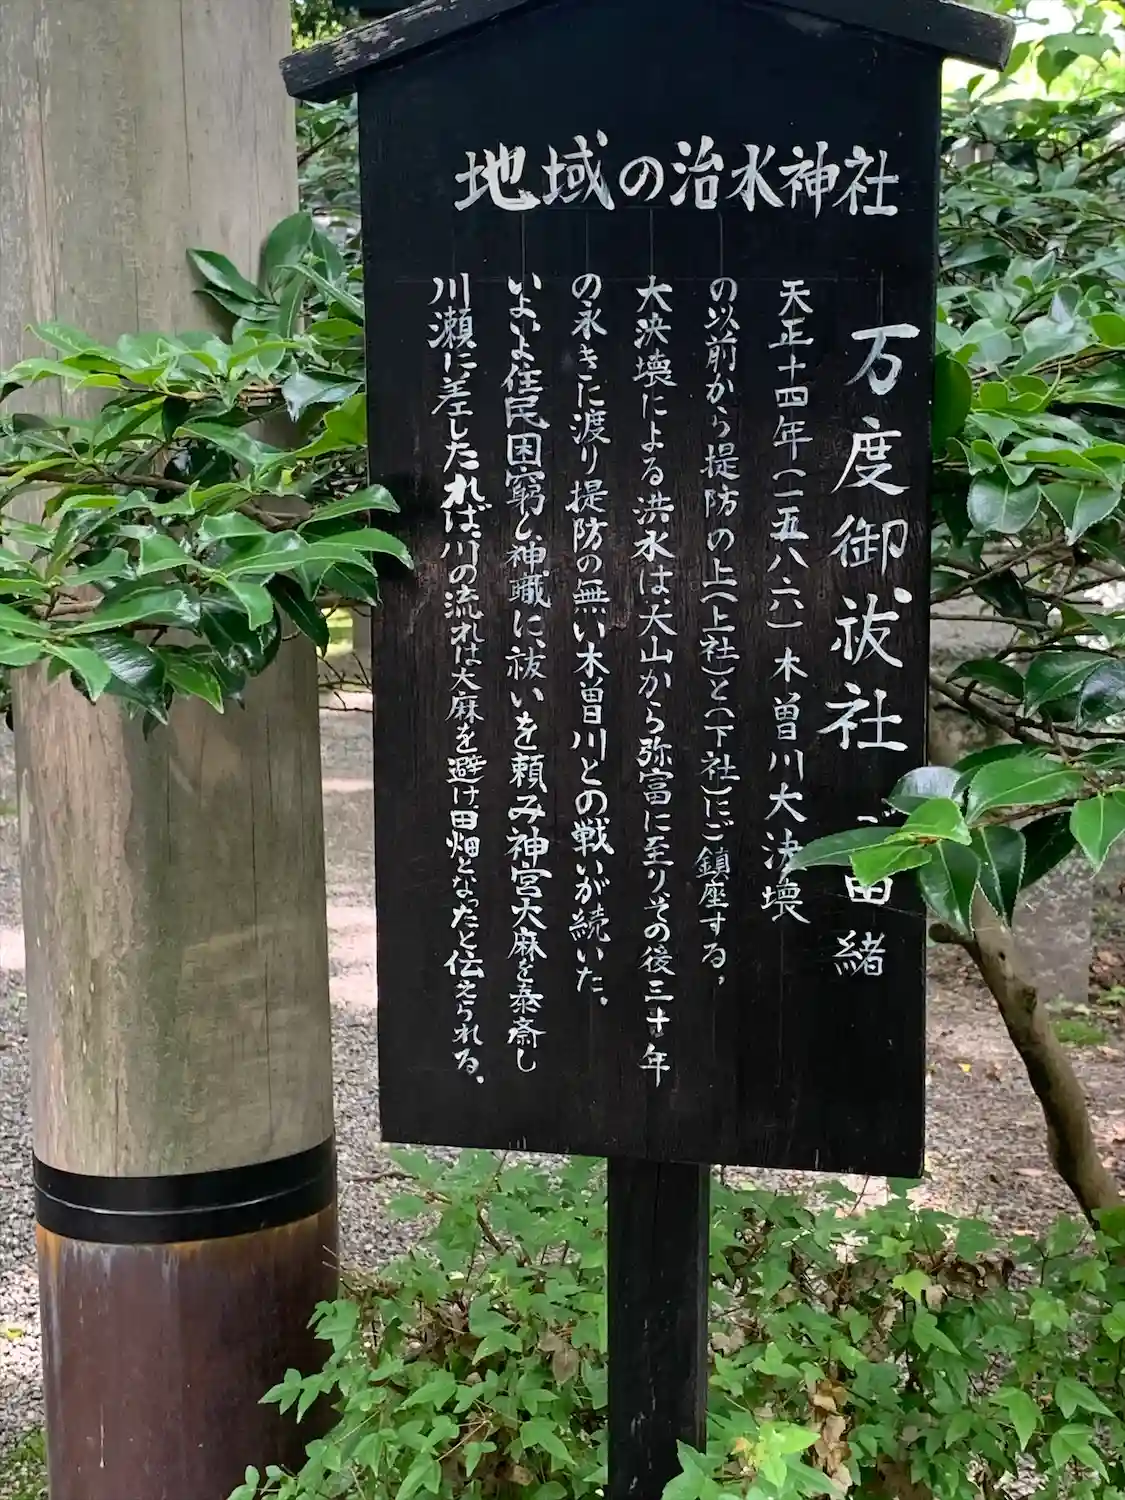 地域の治水神社
万度御祓社 ご由緒
天正十四年(一五八六)木曽川大決壊
の以前から提防の上(上社)と(下社)にご鎮座する。
大決壊による洪水は犬山から弥富に至りその後三十年
の永きに渡り提防の無い木曽川との戦いが続いた。
いよいよ住民困窮し神職に、祓いを頼み神宮大麻を奉斎し
川瀬に差したれば、川の流れは大麻を避け田畑となったと伝えられる。